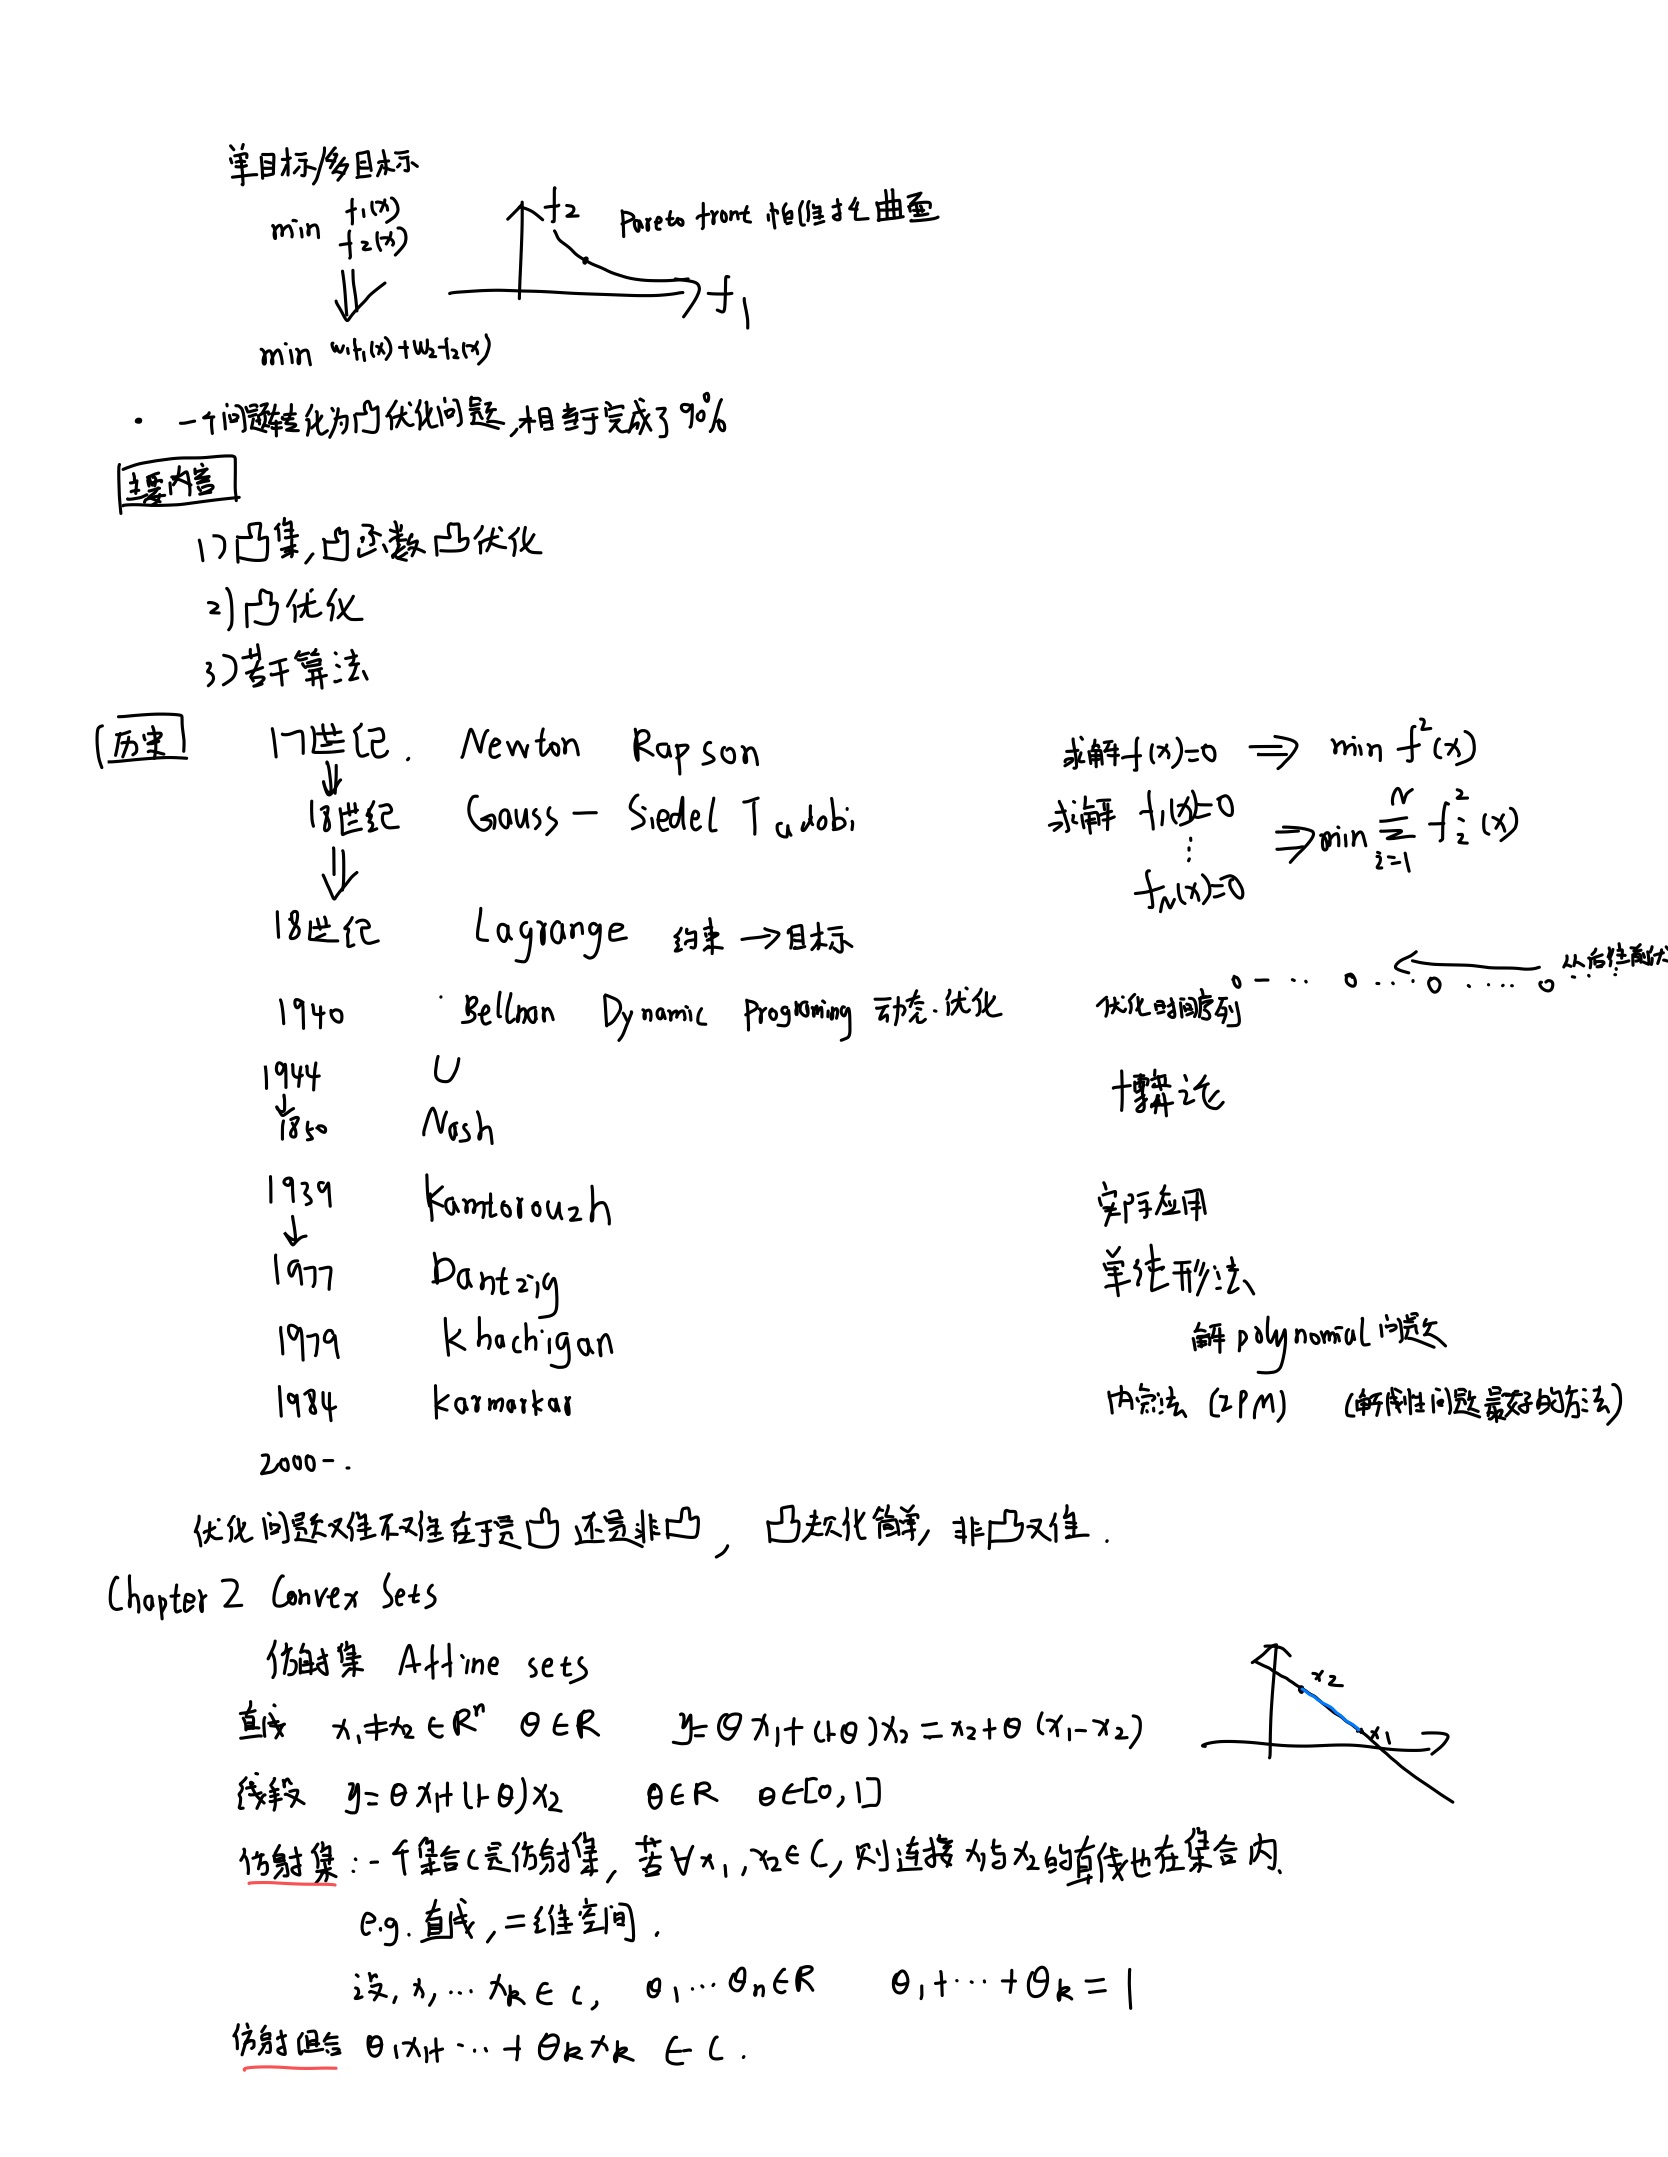 单目标/多目标
min f₁(x)
f₂(x)
f₂
Pareto front 怕累托曲面
f₁
min w₁f₁(x)+w₂f₂(x)
· 一个问题转化为凸优化问题,相当于完成了90%
主要内容
1)凸集,凸函数 凸优化
2)凸优化
3)若干算法
历史
17世纪. Newton Rapson 求解f(x)=0 ⇒ min f²(x)
⇓
18世纪 Gauss - Siedel Jadobi 求解 f₁(x)=0
⋮ ⇒ min Σ_{i=1}^{N} f_i²(x)
f_N(x)=0
⇓
18世纪 Lagrange 约束 → 目标
从后往前
1940 Bellman Dynamic Programing 动态·优化 优化时间序列
1944 U 博弈论
↓
1850 Nash
1939 Kamtorouzh 实际应用
↓
1977 Dantzig 单纯形法
1979 Khachigan 解polynomial问题
1984 Karmarkar 内点法 (IPM) (解线性问题最好的方法)
2000-.
优化问题难不难在于是凸还是非凸, 凸优化简单, 非凸难.
Chapter 2 Convex Sets
仿射集 Affine sets
直线 x₁≠x₂∈Rⁿ θ∈R y=θx₁+(1-θ)x₂=x₂+θ(x₁-x₂)
x₂
x₁
线段 y=θx₁+(1-θ)x₂ θ∈R θ∈[0,1]
仿射集:一个集合C是仿射集, 若∀x₁,x₂∈C, 则连接x₁与x₂的直线也在集合内.
e.g. 直线, 二维空间.
设, x₁…x_k∈C, θ₁…θ_n∈R θ₁+…+θ_k=1
仿射组合 θ₁x₁+…+θ_kx_k ∈C.